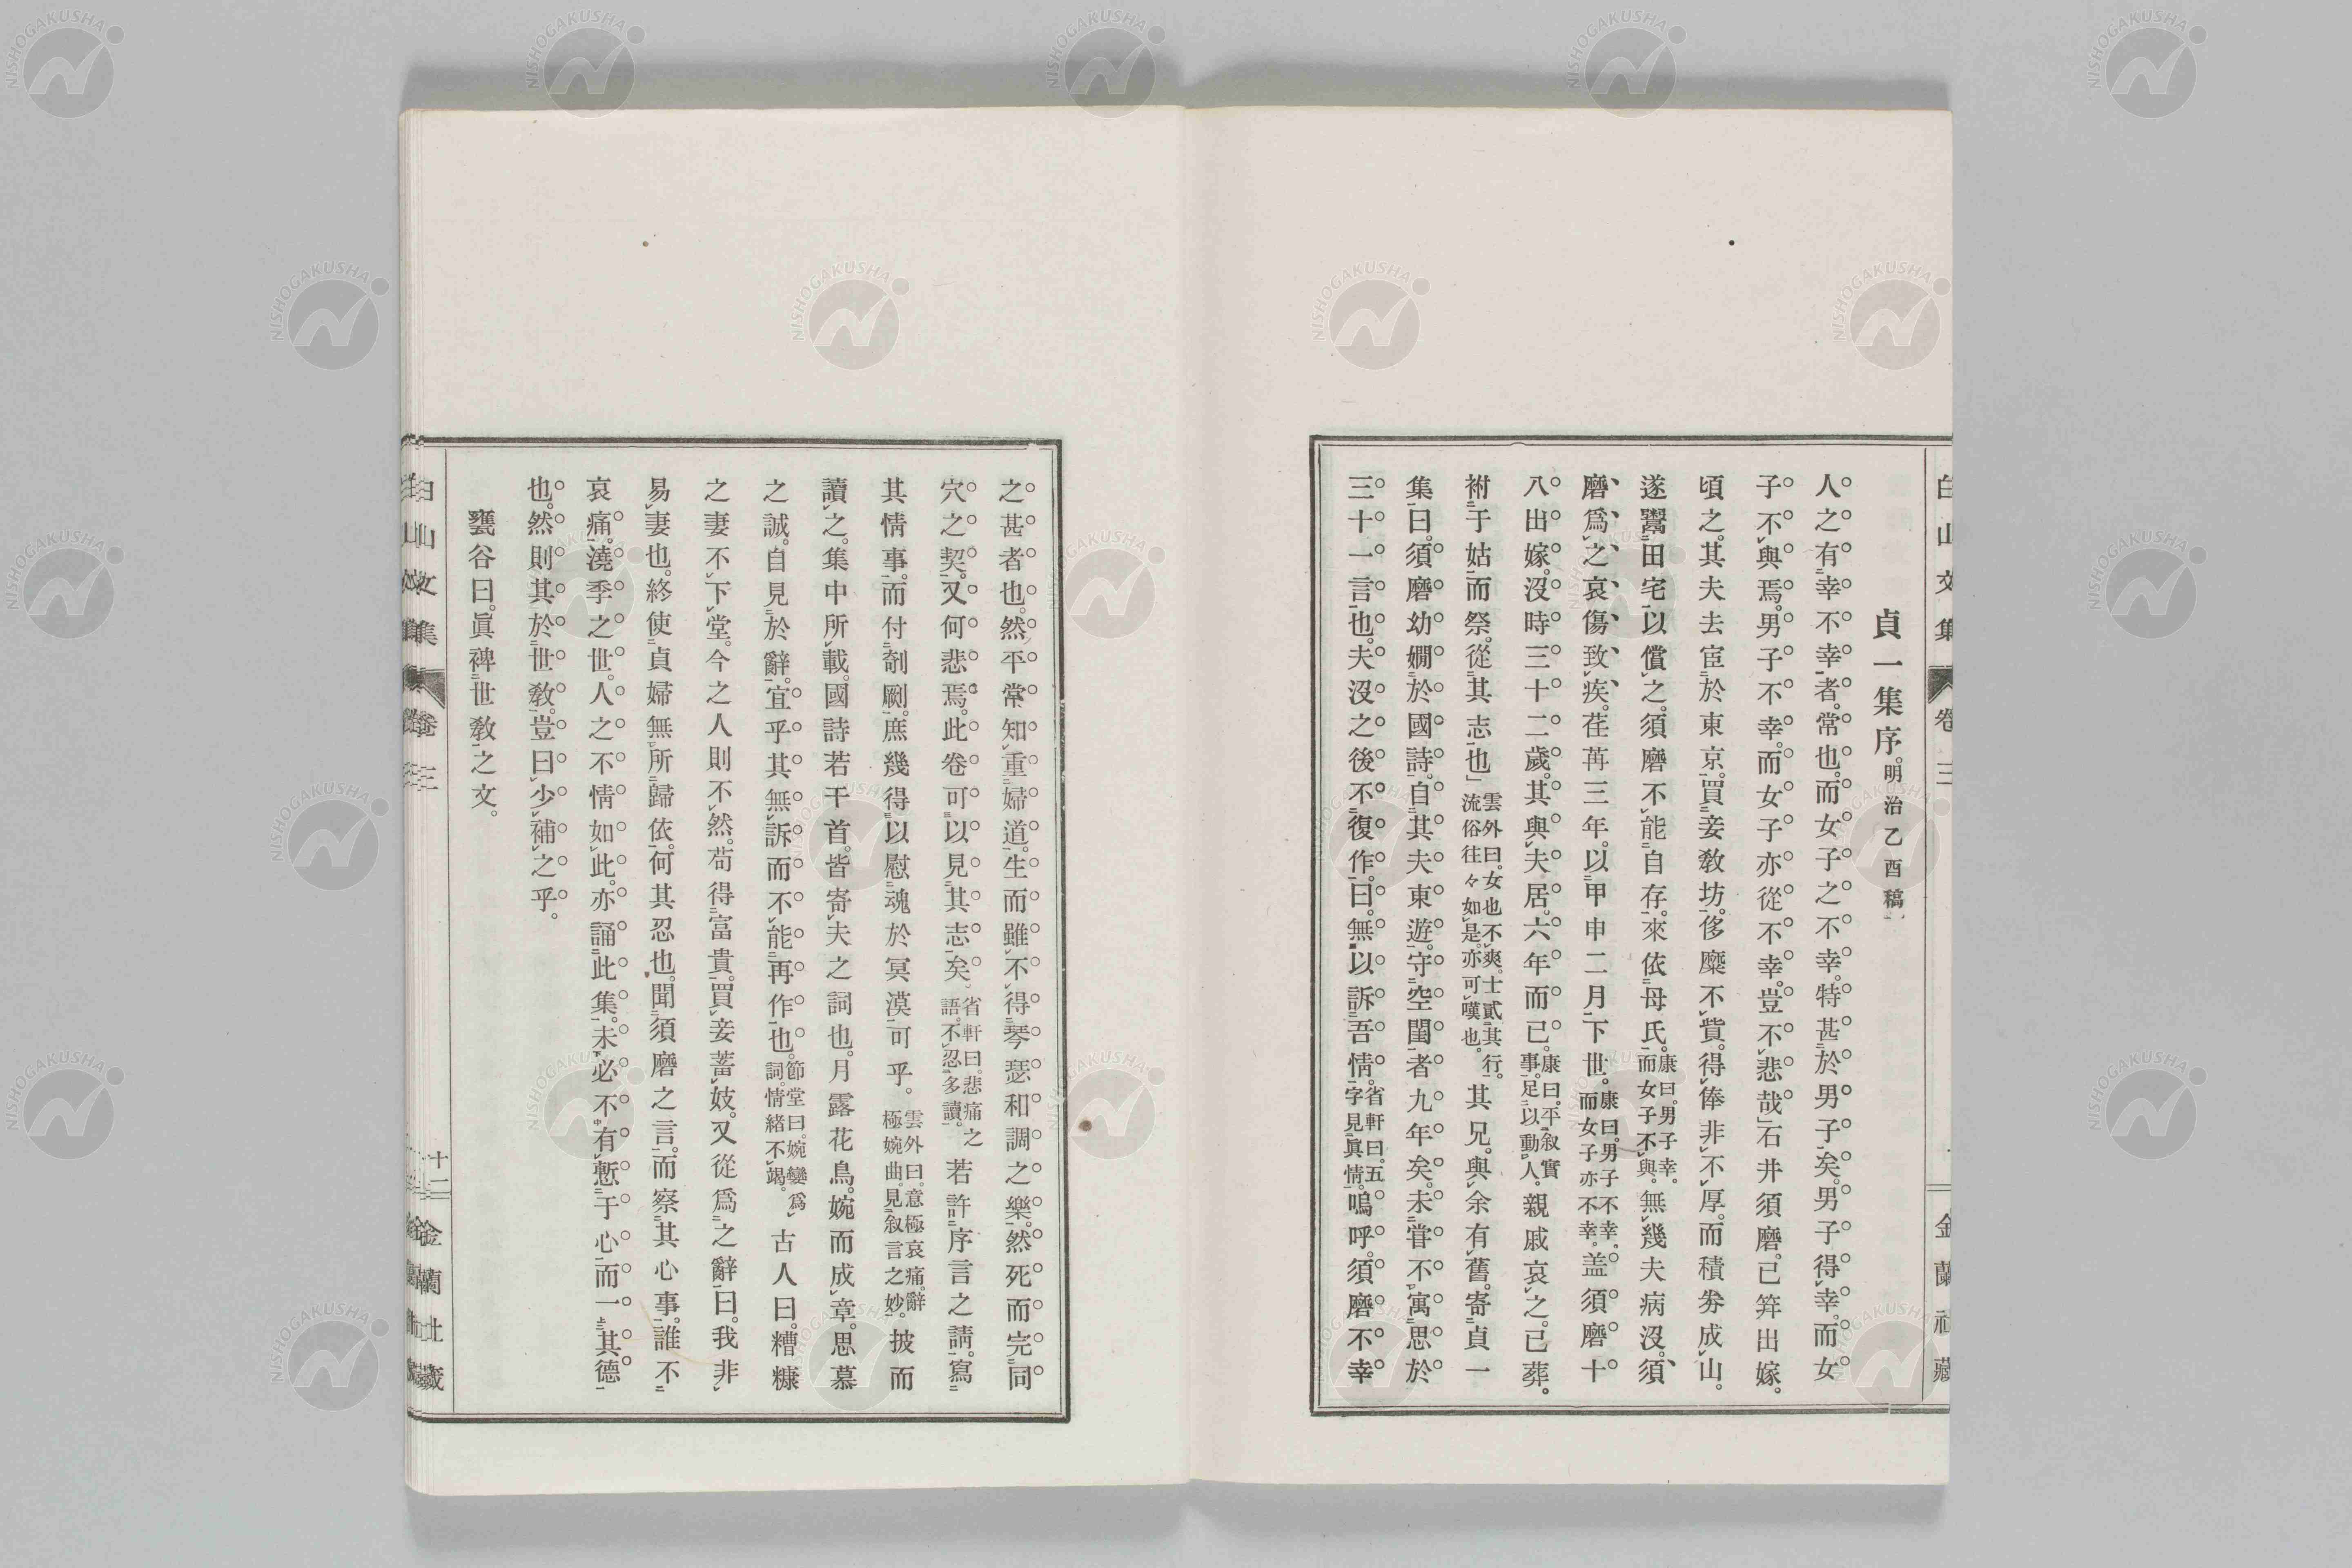 白山文集 卷三 金蘭社藏
貞一集序。明治乙酉稿。
人之有幸不幸者。常也。而女子之不幸。特甚於男子矣。男子得幸。而女
子不與焉。男子不幸。而女子亦從不幸。豈不悲哉」石井須磨。已笄出嫁。
頃之。其夫去宦於東京。買妾敎坊。侈糜不貲。得俸非不厚。而積劵成山。
遂鬻田宅以償之。須磨不能自存。來依母氏。康曰。男子幸。而女子不與。無幾夫病沒。須
磨爲之哀傷致疾。荏苒三年。以甲申二月下世。康曰。男子不幸。而女子亦不幸。盖須磨十
八出嫁。沒時三十二歲。其與夫居。六年而已。康曰。平叙實事。足以動人。親戚哀之。已葬。
祔于姑而祭。從其志也」雲外曰。女也不爽。士貳其行。流俗往々如是。亦可嘆也。其兄。與余有舊。寄貞一
集曰。須磨幼嫺於國詩。自其夫東遊。守空閨者九年矣。未甞不寓思於
三十一言也。夫沒之後不復作。曰。無以訴吾情。省軒曰。五字見眞情。嗚呼。須磨不幸
之甚者也。然平常知重婦道。生而雖不得琴瑟和調之樂。然死而完同
穴之契。又何悲焉。此卷可以見其志矣。省軒曰。悲痛之語。不忍多讀。若許序言之請。寫
其情事。而付剞劂。庶幾得以慰魂於冥漠可乎。雲外曰。意極哀痛。辭極婉曲。見叙言之妙。披而
讀之。集中所載。國詩若干首。皆寄夫之詞也。月露花鳥。婉而成章。思慕
之誠。自見於辭。宜乎其無訴而不能再作也。節堂曰。婉孌爲詞。情緒不竭。古人曰。糟糠
之妻不下堂。今之人則不然。苟得富貴。買妾蓄妓。又從爲之辭曰。我非
易妻也。終使貞婦無所歸依。何其忍也。聞須磨之言。而察其心事。誰不
哀痛。澆季之世。人之不情如此。亦誦此集。未必不有慙于心。而一其德
也。然則其於世敎。豈曰少補之乎。
甕谷曰。眞裨世敎之文。
白山文集 卷三 十二 金蘭社藏